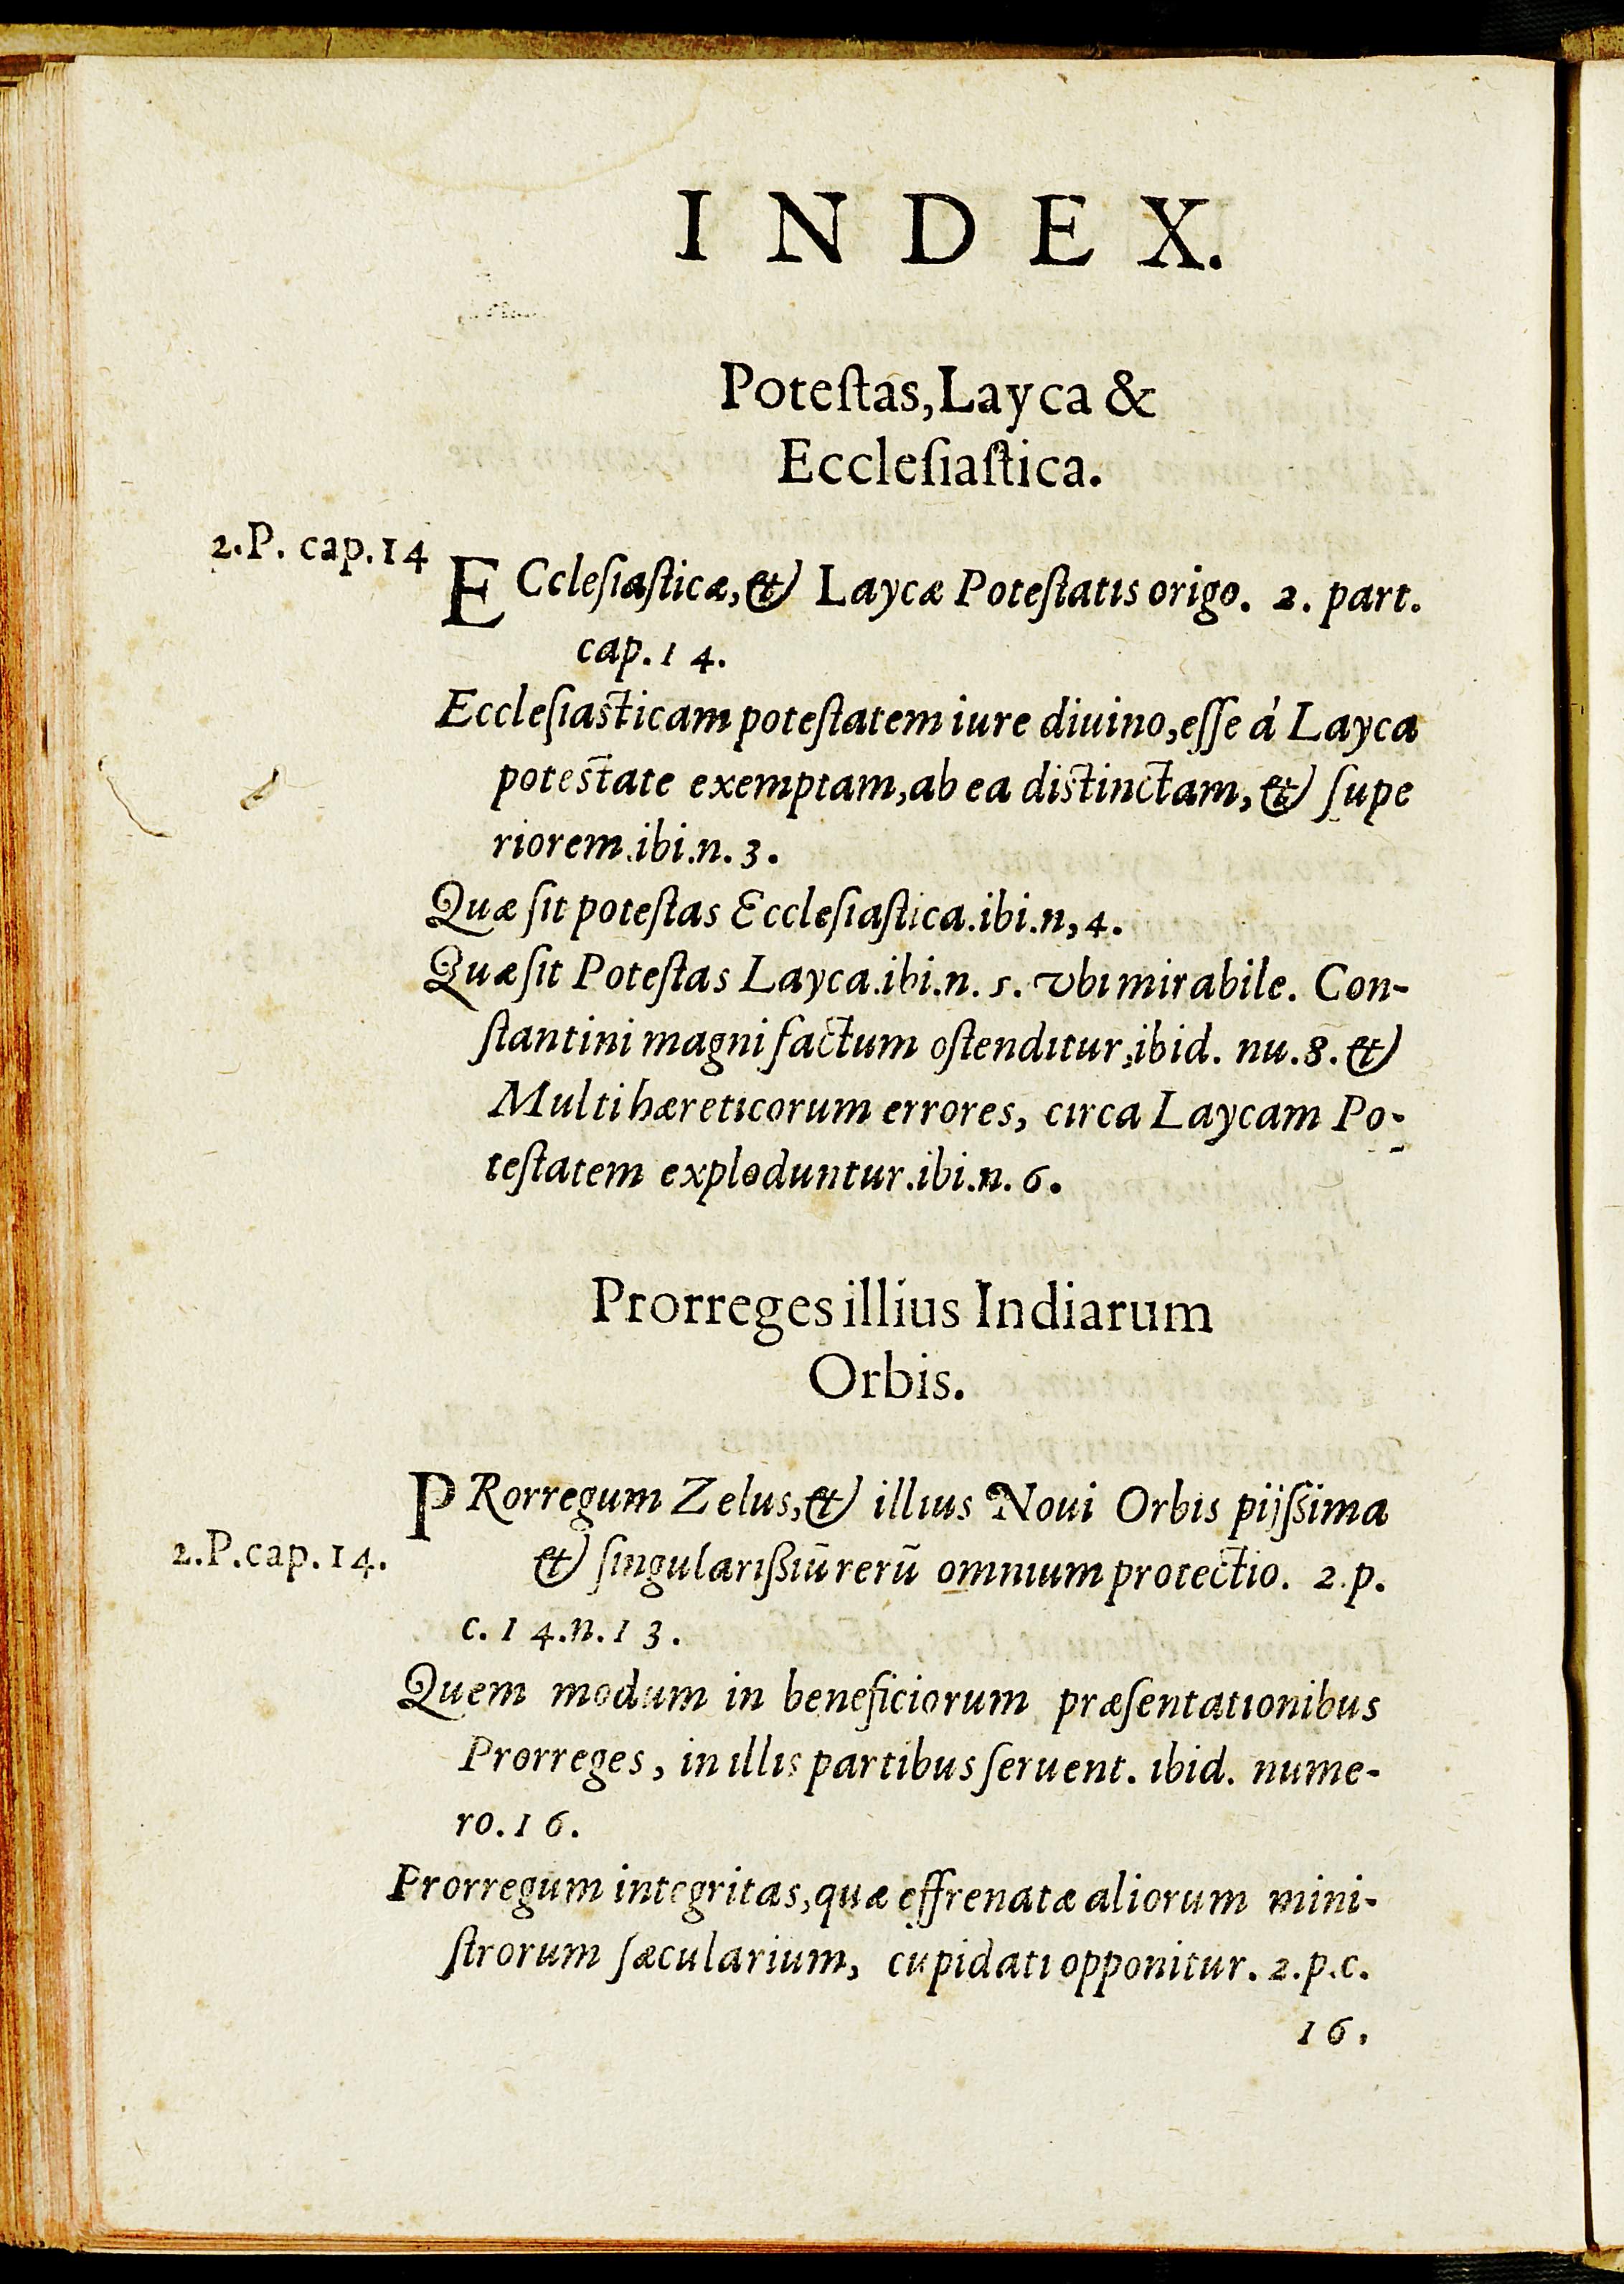 INDEX.
Poteſtas, Layca &
Eccleſiaſtica.
2.P. cap.14
ECcleſiaſticæ, & Laycæ Poteſtatis origo. 2. part.
cap. 14.
Eccleſiaſticam poteſtatem iure diuino, eſſe á Layca
poteſtate exemptam, ab ea diſtinctam, & ſupe
riorem.ibi.n. 3.
Quæ ſit poteſtas Eccleſiaſtica.ibi.n, 4.
Quæ ſit Poteſtas Layca.ibi.n. 5. vbi mirabile. Con-
ſtantini magni factum oſtenditur, ibid. nu. 8. &
Multi hæreticorum errores, circa Laycam Po-
teſtatem exploduntur.ibi.n. 6.
Prorreges illius Indiarum
Orbis.
PRorregum Zelus, & illius Noui Orbis pijſsima
2.P.cap.14.
& ſingularißiū rerū omnium protectio. 2.p.
c. 14.n. 13.
Quem modum in beneficiorum præſentationibus
Prorreges, in illis partibus ſeruent. ibid. nume-
ro. 16.
Prorregum integritas, quæ effrenatæ aliorum mini-
ſtrorum ſæcularium, cupidati opponitur. 2.p.c.
16.